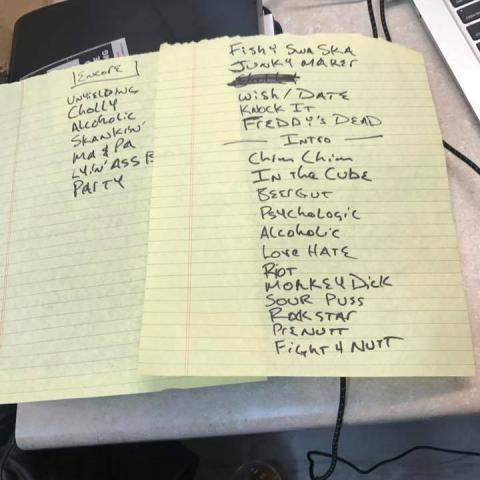 ENCORE
UNYIELDING
Cholly
Alcoholic
SKANKIN'
MA & PA
LYIN' ASS B
PARTY
FISHY SWA SKA
JUNKY MAKER
WISH/DATE
KNOCK IT
FREDDY'S DEAD
INTRO
Chim Chim
IN THE CUBE
BEERGUT
PSYCHOLOGIC
Alcoholic
LOVE HATE
RIOT
MONKEY DICK
SOUR PUSS
ROCKSTAR
PRENUTT
FIGHT 4 NUTT